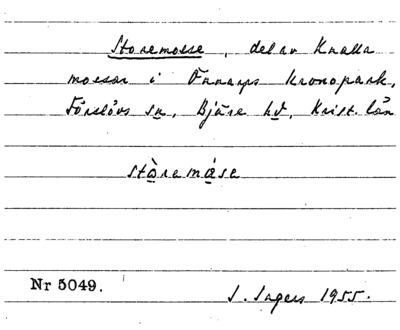 Storemosse, del av Knalla
mossar i Önnarps Kronopark,
Förslövs sn, Bjäre hd, Krist. län
stòremåse
Nr 5049.
S. Ingers 1955.